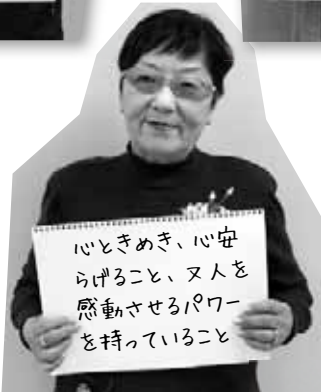 心ときめき、心安
らげること、又人を
感動させるパワー
を持っていること